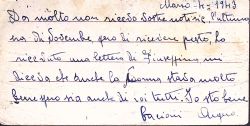 Da molto non ricevo vostre notizie, l'ultima
era di Dicembre, spero di riceverne presto, ho
ricevuto una lettera di Giuseppina mi
diceva che anche la Nonna stava molto
bene spero sia anche di voi tutti. Io sto bene
bacioni